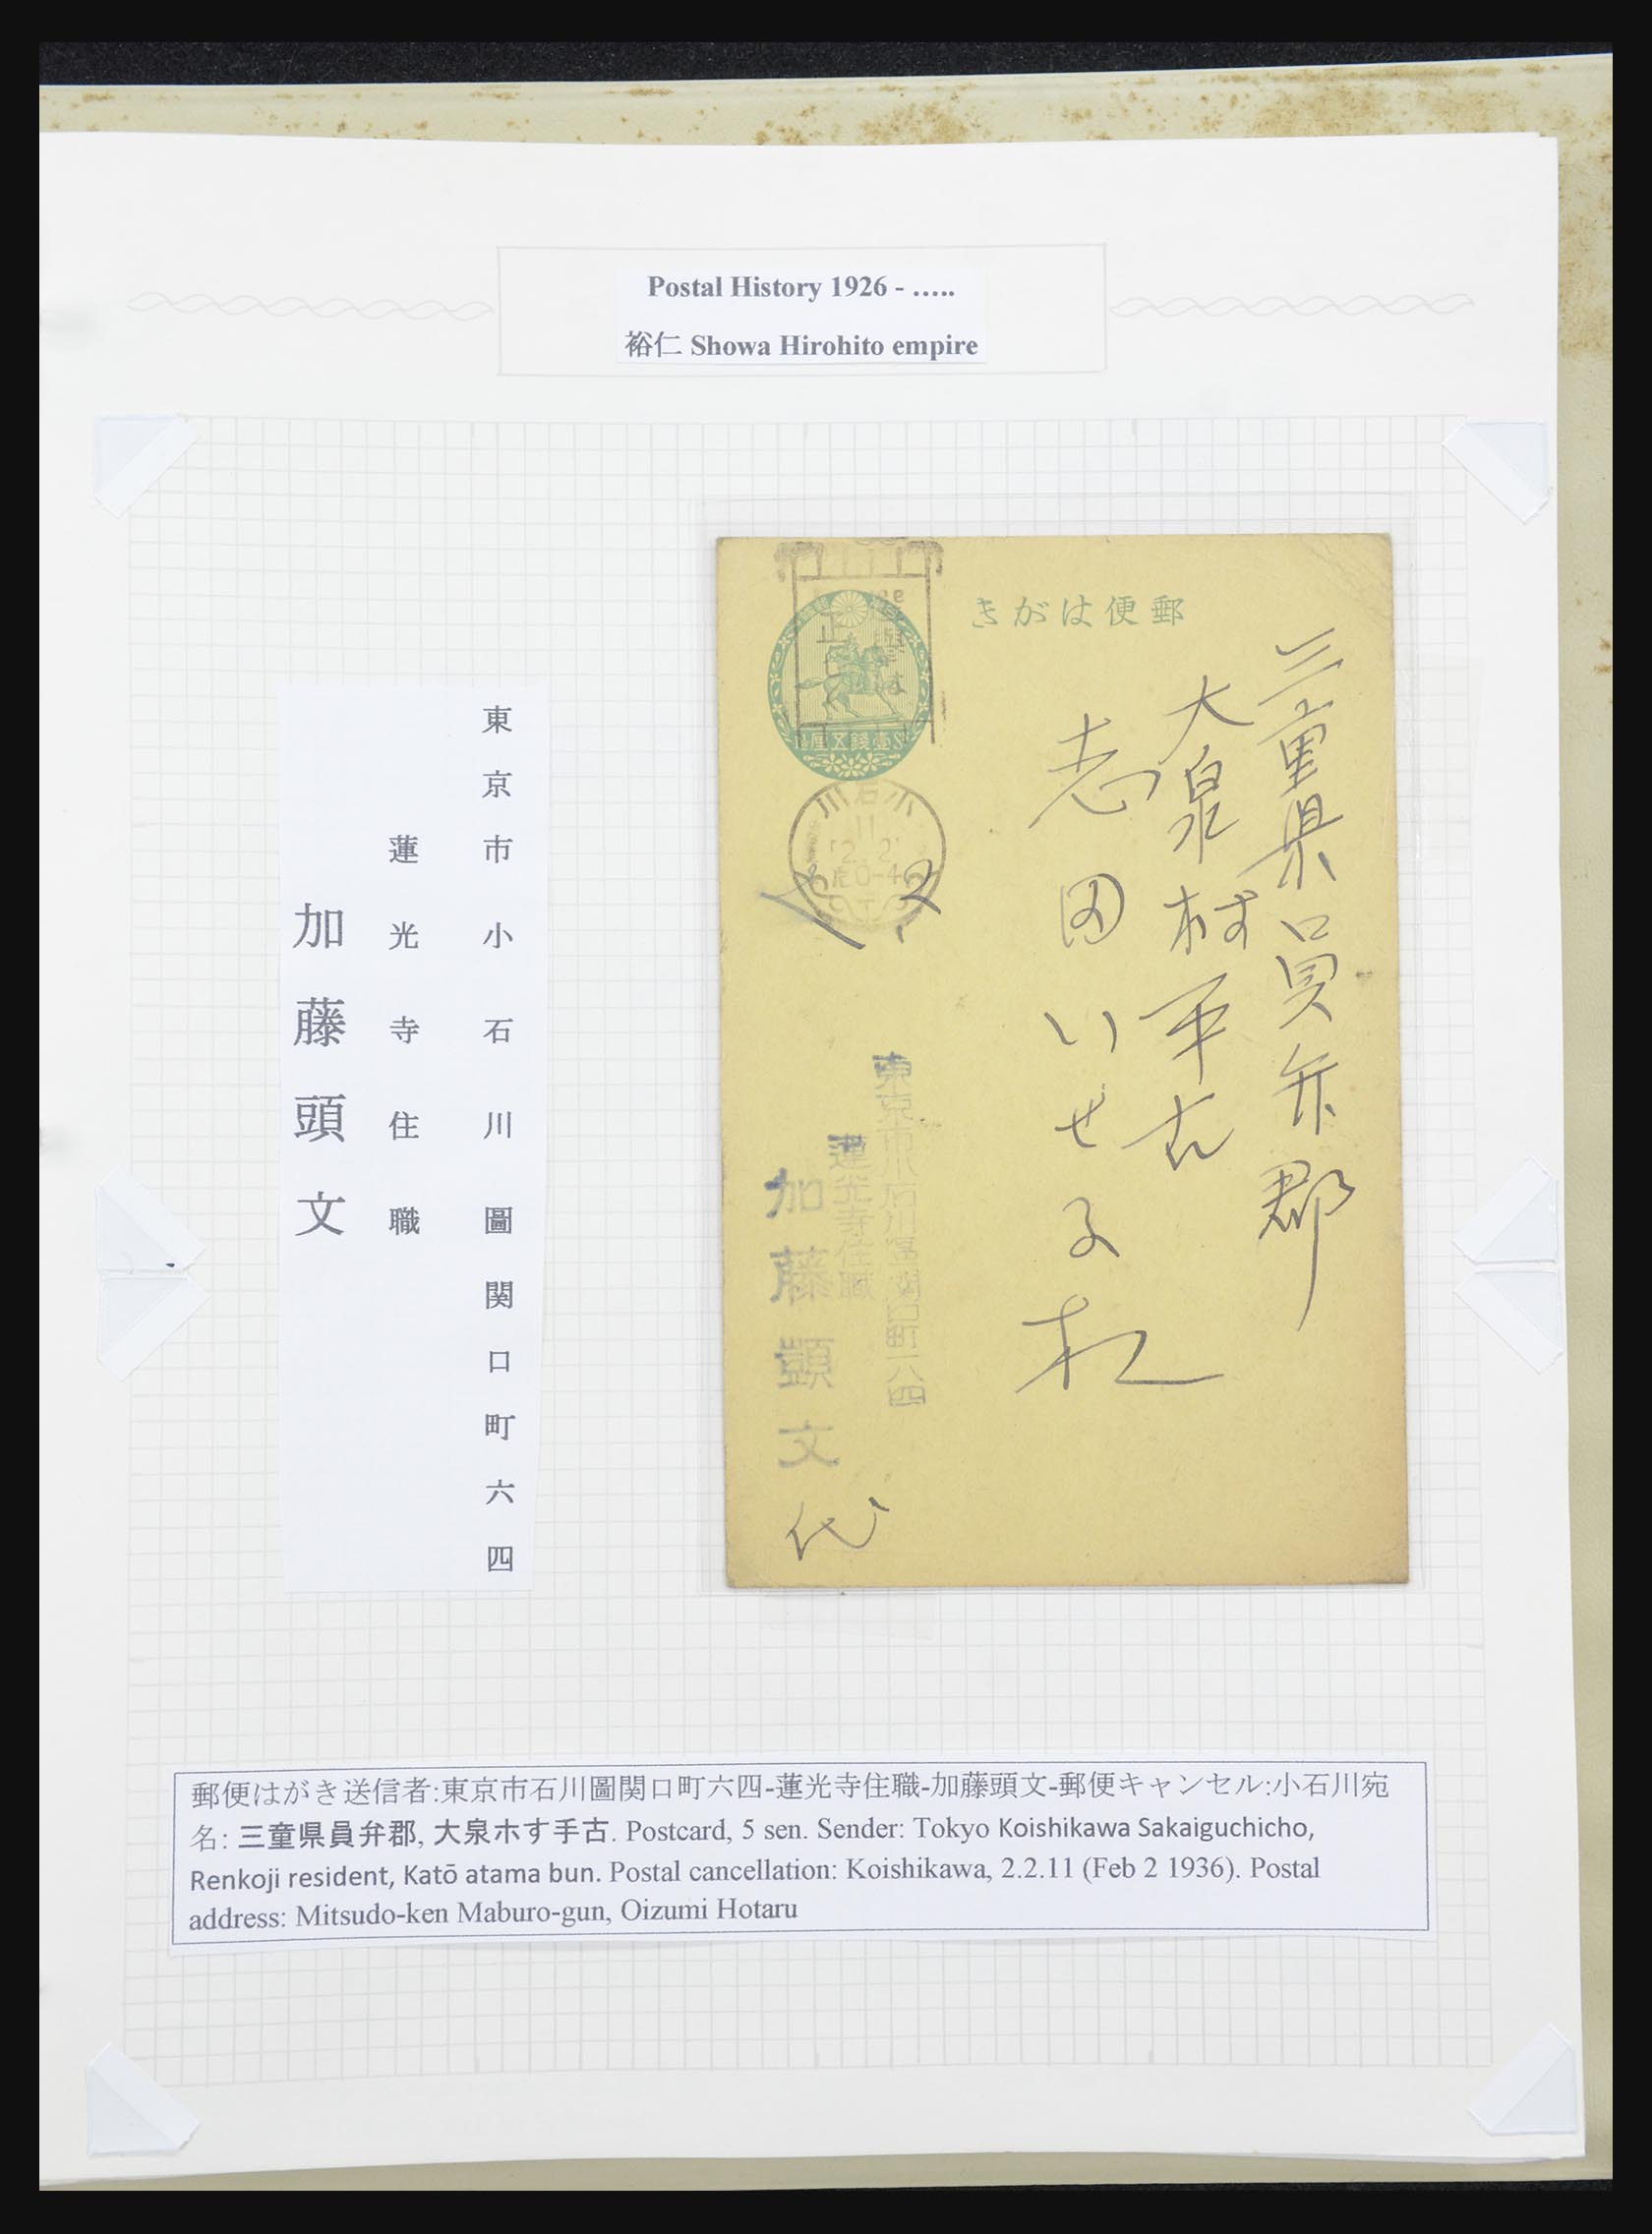 Postal History 1926 - …..
裕仁 Showa Hirohito empire
東京市小石川圖関口町六四
蓮光寺住職
加藤頭文
きがは便郵
三重県員弁郡
大泉村平古
志田いせ子
小石川
東京市小石川區関口町六四
蓮光寺住職
加藤顕文
代
郵便はがき送信者:東京市石川圖関口町六四-蓮光寺住職-加藤頭文-郵便キャンセル:小石川宛
名: 三童県員弁郡, 大泉ホす手古. Postcard, 5 sen. Sender: Tokyo Koishikawa Sakaiguchicho,
Renkoji resident, Katō atama bun. Postal cancellation: Koishikawa, 2.2.11 (Feb 2 1936). Postal
address: Mitsudo-ken Maburo-gun, Oizumi Hotaru